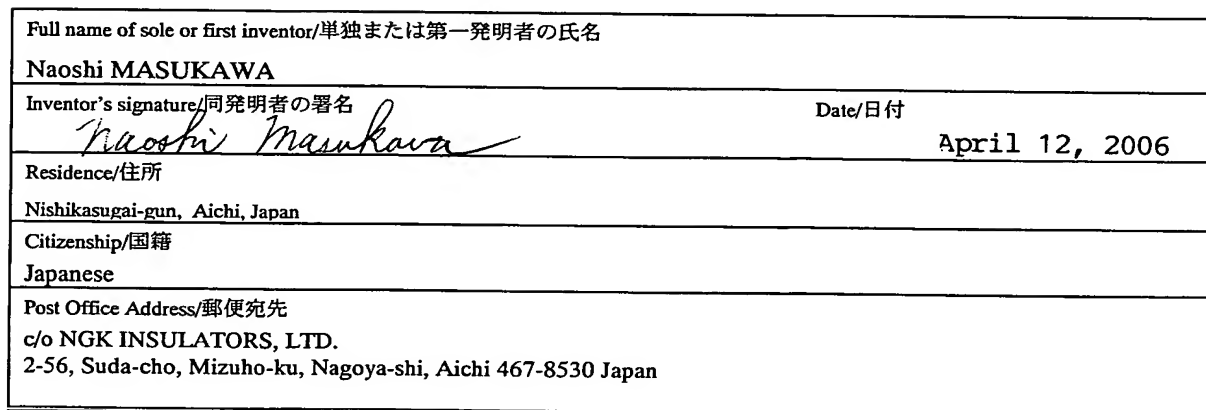 Full name of sole or first inventor/単独または第一発明者の氏名
Naoshi MASUKAWA
Inventor's signature/同発明者の署名 Date/日付
Naoshi Masukawa April 12, 2006
Residence/住所
Nishikasugai-gun, Aichi, Japan
Citizenship/国籍
Japanese
Post Office Address/郵便宛先
c/o NGK INSULATORS, LTD.
2-56, Suda-cho, Mizuho-ku, Nagoya-shi, Aichi 467-8530 Japan